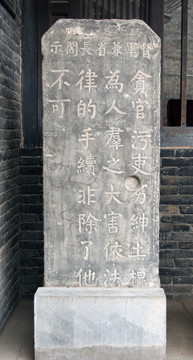 督軍兼省長閻示
貪官污吏劣紳土棍
為人羣之大害依法
律的手續非除了他
不可